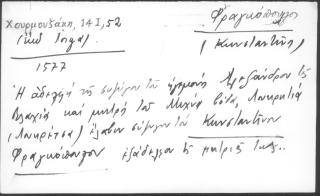 Χουρμουζάκη, 14 I, 52
Φραγκόπουλος
(Κωνσταντῖνος)
1577
Ἡ ἀδελφή τῆς συζύγου τοῦ ἡγεμόνος Ἀλεξάνδρου τῆς
Βλαχίας καί μητρός τοῦ Μίχνα βόδα, Λουκρητία
(Λουκρέτσα) ἔλαβεν σύζυγον τόν Κωνσταντῖνον
Φραγκόπουλον ἐξάδελφον τῆς μητρός της..